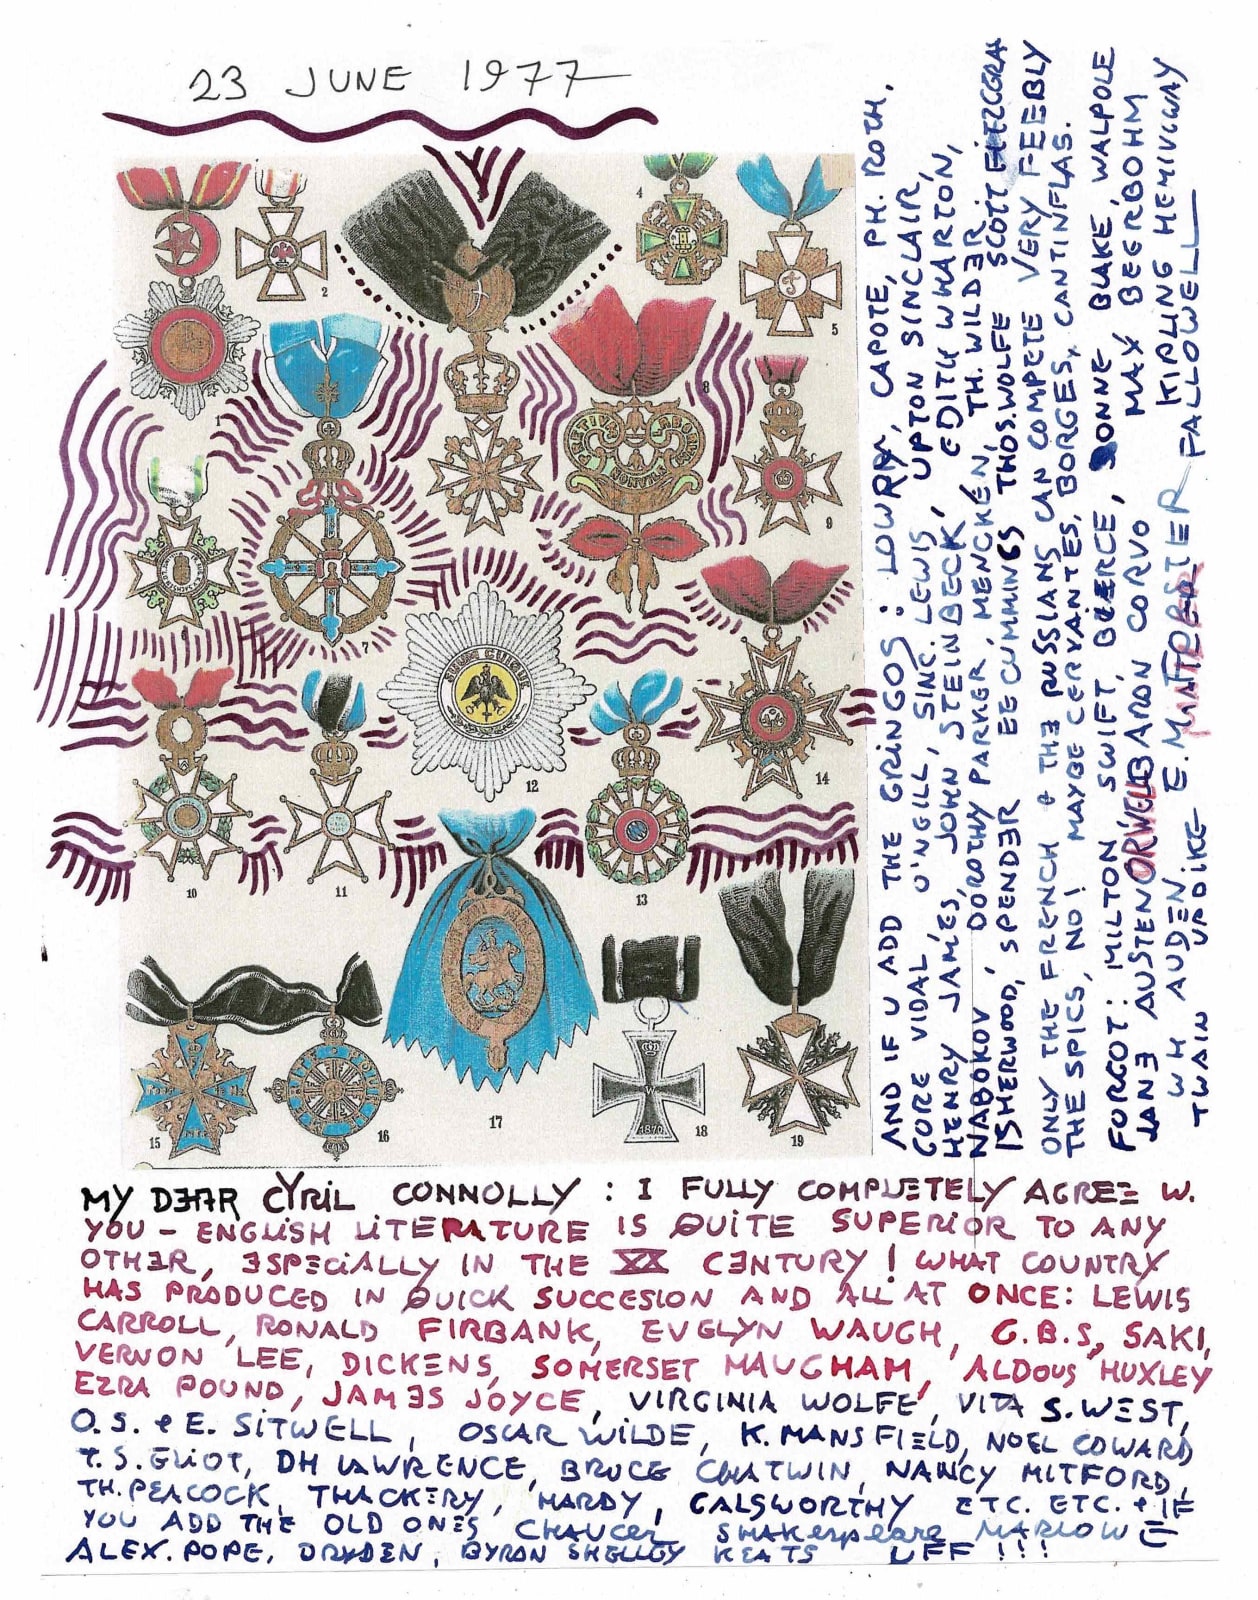 23 JUNE 1977
1
2
4
5
7
8
9
10
11
12
13
14
15
16
17
18
19
SUUM CUIQUE
W
1870
MY DEAR CYRIL CONNOLLY : I FULLY COMPLETELY AGREE W.
YOU – ENGLISH LITERATURE IS QUITE SUPERIOR TO ANY
OTHER, ESPECIALLY IN THE XX CENTURY ! WHAT COUNTRY
HAS PRODUCED IN QUICK SUCCESION AND ALL AT ONCE: LEWIS
CARROLL, RONALD FIRBANK, EVELYN WAUGH, G.B.S, SAKI,
VERNON LEE, DICKENS, SOMERSET MAUGHAM, ALDOUS HUXLEY
EZRA POUND, JAMES JOYCE, VIRGINIA WOLFE, VITA S.WEST,
O.S. & E. SITWELL, OSCAR WILDE, K. MANSFIELD, NOEL COWARD
T.S. ELIOT, DH LAWRENCE, BRUCE CHATWIN, NANCY MITFORD,
TH. PEACOCK, THACKERY, HARDY, GALSWORTHY ETC. ETC. & IF
YOU ADD THE OLD ONES CHAUCER SHAKESPEARE MARLOWE
ALEX. POPE, DRYDEN, BYRON SHELLEY KEATS UFF !!!
AND IF U ADD THE GRINGOS : LOWRY, CAPOTE, PH. ROTH,
GORE VIDAL O'NEILL, SINC. LEWIS UPTON SINCLAIR,
HENRY JAMES, JOHN STEINBECK, EDITH WHARTON,
NABOKOV, DOROTHY PARKER, MENCKEN, TH. WILDER
ISHERWOOD, SPENDER EE CUMMINGS THOS.WOLFE SCOTT
ONLY THE FRENCH & THE RUSSIANS CAN COMPETE VERY FEEBLY
THE SPICS, NO! MAYBE CERVANTES, BORGES, CANTINFLAS.
FORGOT : MILTON SWIFT, BIERCE, DONNE BLAKE, WALPOLE
JANE AUSTEN ORWELL BARON CORVO MAX BEERBOHM
W H AUDEN E. MATRESTER KIPLING HEMIGWAY
TWAIN UPDIKE FALLOWELL